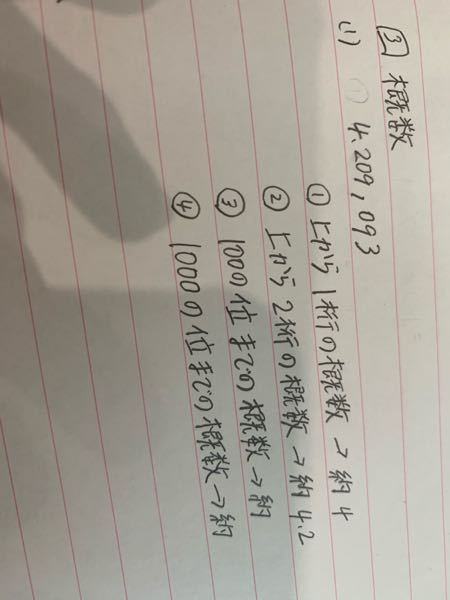 ③ 概数
(1) 4.209,093
① 上から1桁の概数→約4
② 上から2桁の概数→約4.2
③ 100の位までの概数→約
④ 1000の位までの概数→約